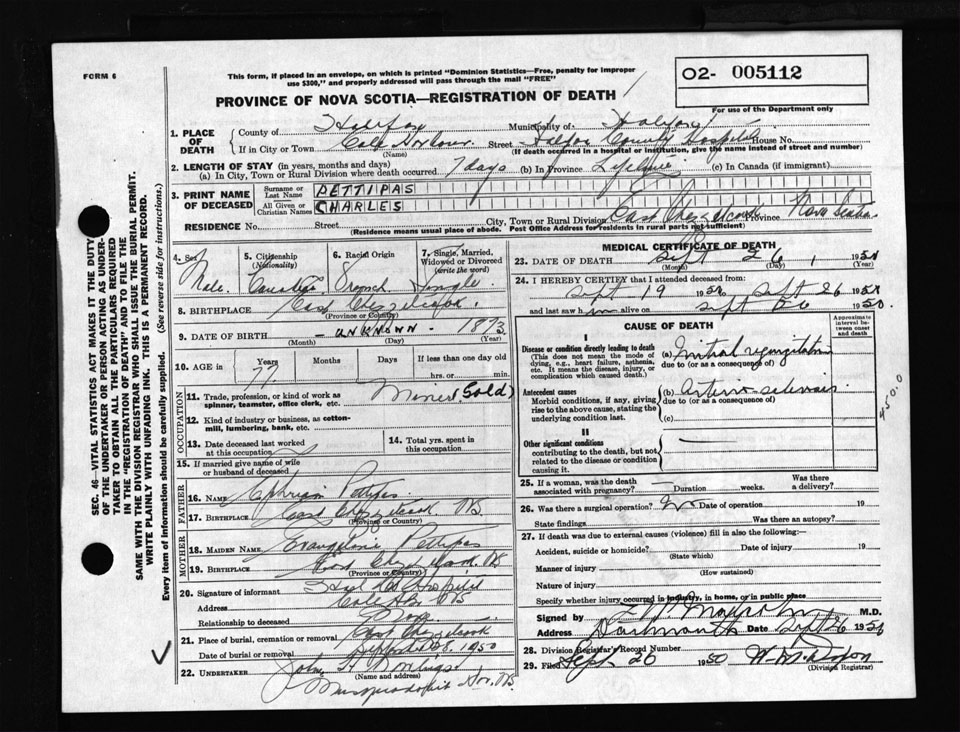 FORM 6
This form, if placed in an envelope, on which is printed "Dominion Statistics—Free, penalty for improper
use $300," and properly addressed will pass through the mail "FREE"
O2- 005112
For use of the Department only
PROVINCE OF NOVA SCOTIA—REGISTRATION OF DEATH
1. PLACE OF DEATH County of Halifax Municipality of Halifax
If in City or Town Cole Harbour (Name) Street Halifax County Hospital House No.
(If death occurred in a hospital or institution, give the name instead of street and number)
2. LENGTH OF STAY (in years, months and days)
(a) In City, Town or Rural Division where death occurred 7 days (b) In Province Lifetime (c) In Canada (if immigrant)
3. PRINT NAME OF DECEASED Surname or Last Name PETTIPAS
All Given or Christian Names CHARLES
RESIDENCE No. Street City, Town or Rural Division East Chezzetcook Province Nova Scotia
(Residence means usual place of abode. Post Office Address for residents in rural parts not sufficient)
4. Sex Male 5. Citizenship (Nationality) Canadian 6. Racial Origin French 7. Single, Married, Widowed or Divorced (write the word) Single
8. BIRTHPLACE East Chezzetcook
(Province or Country)
9. DATE OF BIRTH - UNKNOWN - 1873
(Month) (Day) (Year)
10. AGE in Years 77 Months Days If less than one day old
hrs. or min.
OCCUPATION
11. Trade, profession, or kind of work as spinner, teamster, office clerk, etc. Miner (Gold)
12. Kind of industry or business, as cotton-mill, lumbering, bank, etc.
13. Date deceased last worked at this occupation 14. Total yrs. spent in this occupation
15. If married give name of wife or husband of deceased
FATHER
16. NAME Ephriam Pettipas
17. BIRTHPLACE East Chezzetcook NS
(Province or Country)
MOTHER
18. MAIDEN NAME Evangeline Pettipas
19. BIRTHPLACE East Chezzetcook NS
(Province or Country)
20. Signature of informant Hfx Co Hospital
Address Cole Hbr NS
Relationship to deceased
21. Place of burial, cremation or removal East Chezzetcook
Date of burial or removal Sept 28, 1950
22. UNDERTAKER John
(Name and address)
Musquodoboit Hbr. NS
MEDICAL CERTIFICATE OF DEATH
23. DATE OF DEATH Sept 26, 1950
(Month) (Day) (Year)
24. I HEREBY CERTIFY that I attended deceased from:
Sept 19 1950 to Sept 26 1950
and last saw him alive on Sept 26 1950.
CAUSE OF DEATH
Approximate interval between onset and death
I
Disease or condition directly leading to death (This does not mean the mode of dying, e.g., heart failure, asthenia, etc. It means the disease, injury, or complication which caused death.)
(a) Mitral regurgitation
due to (or as a consequence of)
Antecedent causes
Morbid conditions, if any, giving rise to the above cause, stating the underlying condition last.
(b) Arterio-sclerosis
due to (or as a consequence of)
(c)
4500
II
Other significant conditions
contributing to the death, but not related to the disease or condition causing it.
25. If a woman, was the death associated with pregnancy? — Duration weeks. Was there a delivery?
26. Was there a surgical operation? No Date of operation 19
State findings Was there an autopsy?
27. If death was due to external causes (violence) fill in also the following:—
Accident, suicide or homicide? Date of injury 19
(State which)
Manner of injury
(How sustained)
Nature of injury
Specify whether injury occurred in industry, in home, or in public place
Signed by M.D.
Address Dartmouth Date Sept 26 1950
28. Division Registrar's Record Number
29. Filed Sept 26 1950
(Division Registrar)
SEC. 46—VITAL STATISTICS ACT MAKES IT THE DUTY
OF THE UNDERTAKER OR PERSON ACTING AS UNDER-
TAKER TO OBTAIN ALL THE PARTICULARS REQUIRED
IN THE "REGISTRATION OF DEATH" AND TO FILE THE
SAME WITH THE DIVISION REGISTRAR WHO SHALL ISSUE THE BURIAL PERMIT.
WRITE PLAINLY WITH UNFADING INK. THIS IS A PERMANENT RECORD.
Every item of information should be carefully supplied. (See reverse side for instructions.)